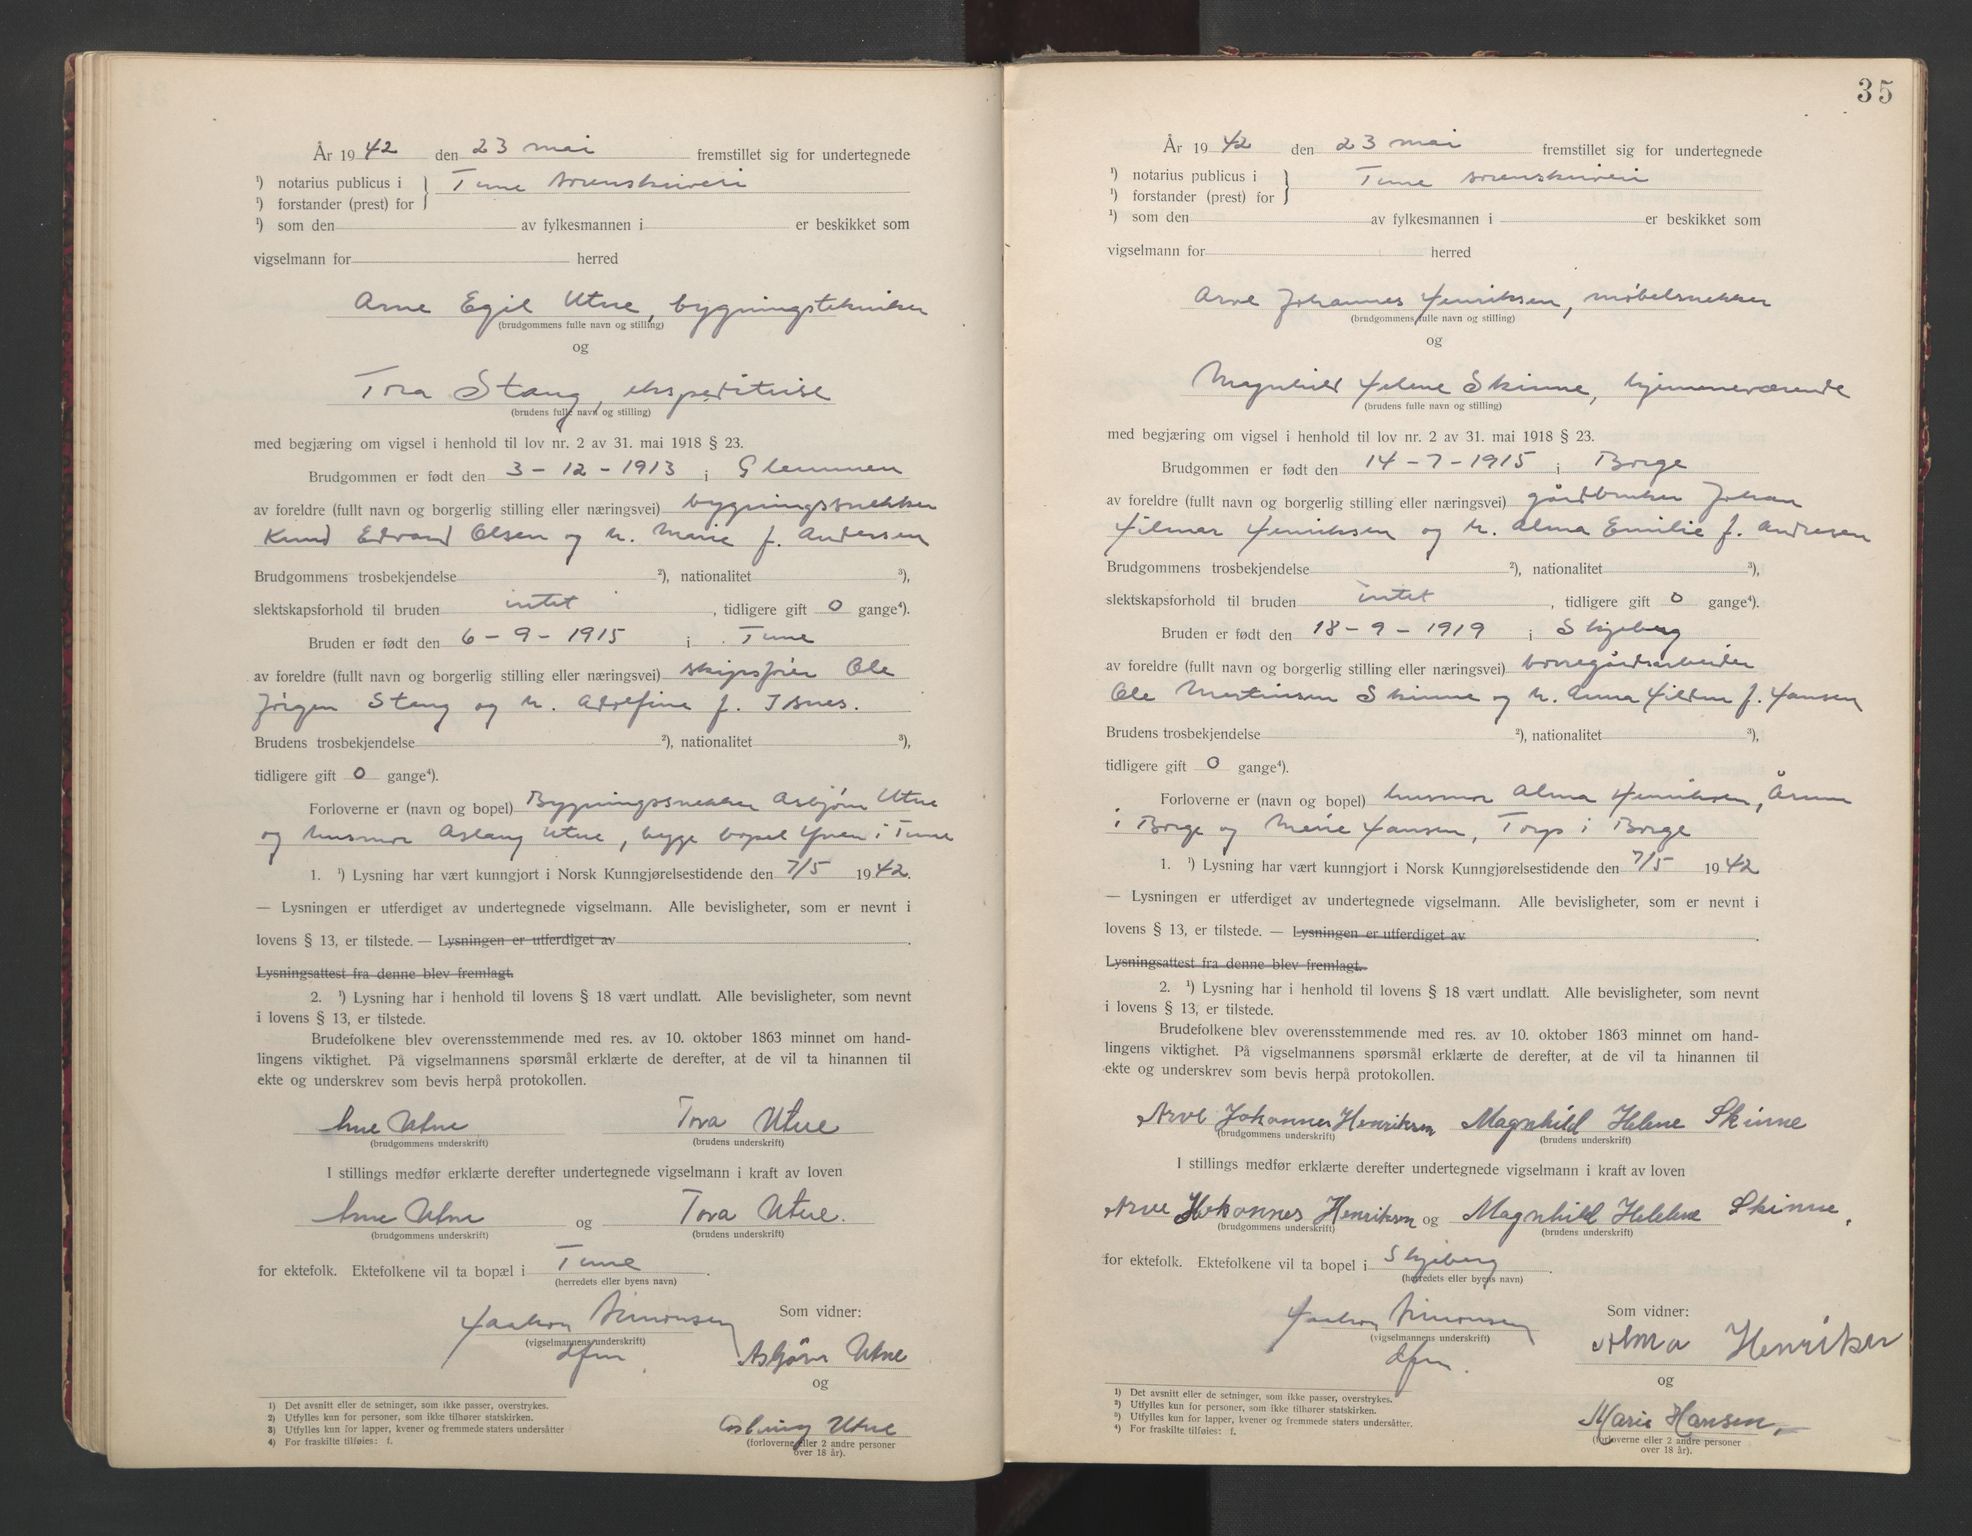 År 1942 den 23 mai fremstillet sig for undertegnede
¹) notarius publicus i } Tune sorenskriveri
¹) forstander (prest) for
¹) som den av fylkesmannen i er beskikket som
vigselmann for herred
Arne Egil Utne, bygningstekniker
(brudgommens fulle navn og stilling)
og
Tora Stang, ekspeditrise
(brudens fulle navn og stilling)
med begjæring om vigsel i henhold til lov nr. 2 av 31. mai 1918 § 23.
Brudgommen er født den 3-12-1913 i Glemmen
av foreldre (fullt navn og borgerlig stilling eller næringsvei) bygningssnekker
Knud Edvard Olsen og h. Marie f. Andersen
Brudgommens trosbekjendelse ²), nationalitet ³),
slektskapsforhold til bruden intet, tidligere gift 0 gange⁴).
Bruden er født den 6-9-1915 i Tune
av foreldre (fullt navn og borgerlig stilling eller næringsvei) skipsfører Ole
Jörgen Stang og h. Adolfine f. Isnes.
Brudens trosbekjendelse ²), nationalitet ³),
tidligere gift 0 gange⁴).
Forloverne er (navn og bopel) Bygningssnekker Asbjörn Utne
og husmor Aslaug Utne, begge bopel Yven i Tune
1. ¹) Lysning har vært kunngjort i Norsk Kunngjørelsestidende den 7/5 1942.
— Lysningen er utferdiget av undertegnede vigselmann. Alle bevisligheter, som er nevnt i
lovens § 13, er tilstede. — Lysningen er utferdiget av .
Lysningsattest fra denne blev fremlagt.
2. ¹) Lysning har i henhold til lovens § 18 vært undlatt. Alle bevisligheter, som nevnt
i lovens § 13, er tilstede.
Brudefolkene blev overensstemmende med res. av 10. oktober 1863 minnet om hand-
lingens viktighet. På vigselmannens spørsmål erklærte de derefter, at de vil ta hinannen til
ekte og underskrev som bevis herpå protokollen.
Arne Utne Tora Utne
(brudgommens underskrift) (brudens underskrift)
I stillings medfør erklærte derefter undertegnede vigselmann i kraft av loven
Arne Utne og Tora Utne.
(brudgommens underskrift) (brudens underskrift)
for ektefolk. Ektefolkene vil ta bopæl i Tune .
(herredets eller byens navn)
Haakon Simonsen Som vidner:
(vigselmannens underskrift)
dfm. Asbjörn Utne
og
Aslaug Utne
(forloverne eller 2 andre personer
over 18 år).
1) Det avsnitt eller de setninger, som ikke passer, overstrykes.
2) Utfylles kun for personer, som ikke tilhører statskirken.
3) Utfylles kun for lapper, kvener og fremmede staters undersåtter
4) For fraskilte tilføies: f.
35
År 1942 den 23 mai fremstillet sig for undertegnede
¹) notarius publicus i } Tune sorenskriveri
¹) forstander (prest) for
¹) som den av fylkesmannen i er beskikket som
vigselmann for herred
Arve Johannes Henriksen, møbelsnekker
(brudgommens fulle navn og stilling)
og
Magnhild Helene Skinne, hjemmeværende
(brudens fulle navn og stilling)
med begjæring om vigsel i henhold til lov nr. 2 av 31. mai 1918 § 23.
Brudgommen er født den 14-7-1915 i Borge
av foreldre (fullt navn og borgerlig stilling eller næringsvei) gårdbruker Johan
Hilmar Henriksen og h. Alma Emilie f. Andresen
Brudgommens trosbekjendelse ²), nationalitet ³),
slektskapsforhold til bruden intet, tidligere gift 0 gange⁴).
Bruden er født den 18-9-1919 i Skjeberg
av foreldre (fullt navn og borgerlig stilling eller næringsvei) borregårdsarbeider
Ole Martinsen Skinne og h. Anna Hilda f. Hansen
Brudens trosbekjendelse ²), nationalitet ³),
tidligere gift 0 gange⁴).
Forloverne er (navn og bopel) husmor Alma Henriksen, Årum
i Borge og Marie Hansen, Torp i Borge
1. ¹) Lysning har vært kunngjort i Norsk Kunngjørelsestidende den 7/5 1942
— Lysningen er utferdiget av undertegnede vigselmann. Alle bevisligheter, som er nevnt i
lovens § 13, er tilstede. — Lysningen er utferdiget av .
Lysningsattest fra denne blev fremlagt.
2. ¹) Lysning har i henhold til lovens § 18 vært undlatt. Alle bevisligheter, som nevnt
i lovens § 13, er tilstede.
Brudefolkene blev overensstemmende med res. av 10. oktober 1863 minnet om hand-
lingens viktighet. På vigselmannens spørsmål erklærte de derefter, at de vil ta hinannen til
ekte og underskrev som bevis herpå protokollen.
Arve Johannes Henriksen Magnhild Helene Skinne
(brudgommens underskrift) (brudens underskrift)
I stillings medfør erklærte derefter undertegnede vigselmann i kraft av loven
Arve Johannes Henriksen og Magnhild Helene Skinne,
(brudgommens underskrift) (brudens underskrift)
for ektefolk. Ektefolkene vil ta bopel i Skjeberg .
(herredets eller byens navn)
Haakon Simonsen Som vidner:
(vigselmannens underskrift)
dfm. Alma Henriksen
og
Marie Hansen
(forloverne eller 2 andre personer
over 18 år).
¹) Det avsnitt eller de setninger, som ikke passer, overstrykes.
²) Utfylles kun for personer, som ikke tilhører statskirken.
³) Utfylles kun for lapper, kvener og fremmede staters undersåtter.
⁴) For fraskilte tilføies: f.